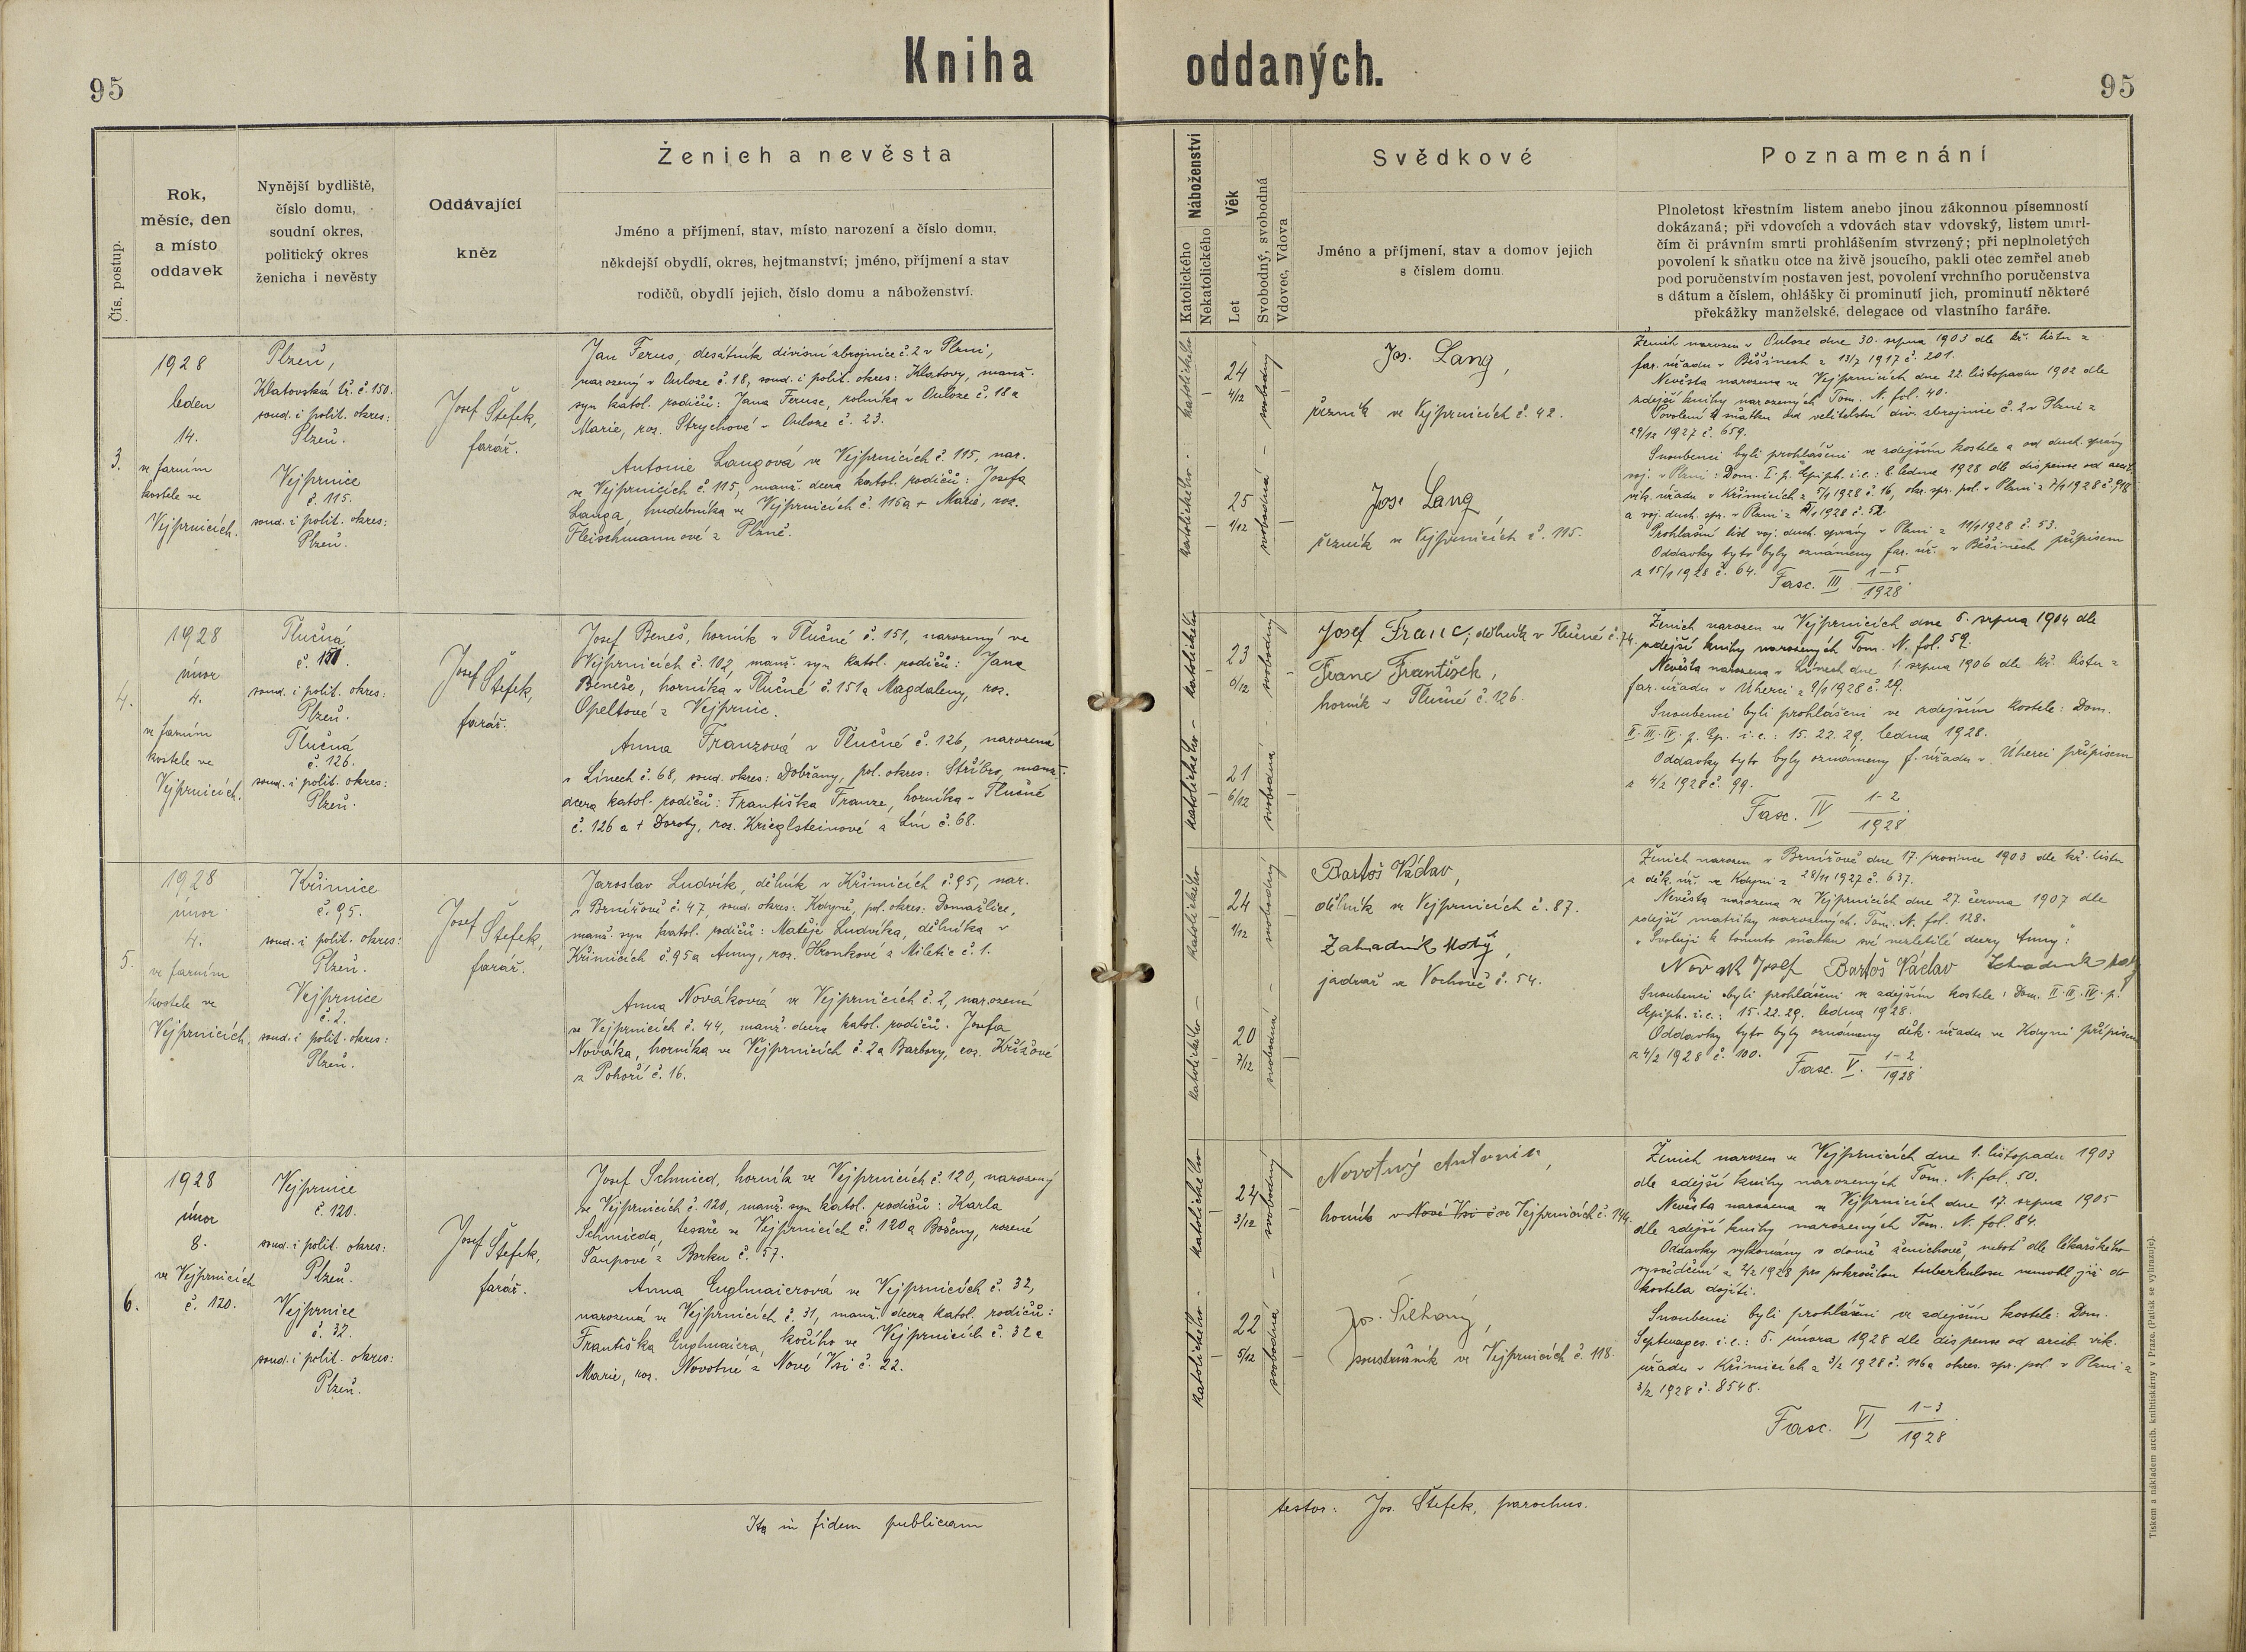 95
Kniha oddaných.
95
Čís. postup.
Rok,
měsíc, den
a místo
oddavek
Nynější bydliště,
číslo domu,
soudní okres,
politický okres
ženicha i nevěsty
Oddávající
kněz
Ženich a nevěsta
Jméno a příjmení, stav, místo narození a číslo domu,
někdejší obydlí, okres, hejtmanství; jméno, příjmení a stav
rodičů, obydlí jejich, číslo domu a náboženství.
Náboženství
Katolického
Nekatolického
Věk
Let
Svobodný, svobodná
Vdovec, Vdova
Svědkové
Jméno a příjmení, stav a domov jejich
s číslem domu.
Poznamenání
Plnoletost křestním listem anebo jinou zákonnou písemností
dokázaná; při vdovcích a vdovách stav vdovský, listem umrl-
čím či právním smrti prohlášením stvrzený; při neplnoletých
povolení k sňatku otce na živě jsoucího, pakli otec zemřel aneb
pod poručenstvím postaven jest, povolení vrchního poručenstva
s dátum a číslem, ohlášky či prominutí jich, prominutí některé
překážky manželské, delegace od vlastního faráře.
3.
1928
leden
14.
ve farním
kostele ve
Vejprnicích.
Plzeň,
Klatovská tř. č. 150.
soud. i polit. okres:
Plzeň.
Vejprnice
č. 115.
soud. i polit. okres:
Plzeň.
Josef Štefek,
farář.
Jan Ferus, desátník divisní zbrojnice č. 2 v Plzni,
narozený v Ouloze č. 18, soud. i polit. okres: Klatovy, manž.
syn katol. rodičů: Jana Feruse, rolníka v Ouloze č. 18 a
Marie, roz. Strychové v Ouloze č. 23.
Antonie Langová ve Vejprnicích č. 115, nar.
ve Vejprnicích č. 115, manž. dcera katol. rodičů: Josefa
Langa, hudebníka ve Vejprnicích č. 115 a + Marie, roz.
Fleischmannové z Plzně.
katolického
24
4/12
svobodný
katolického
25
1/12
svobodná
Jos. Lang,
řezník ve Vejprnicích č. 42.
Jos. Lang,
řezník ve Vejprnicích č. 115.
Ženich narozen v Ouloze dne 30. srpna 1903 dle kř. listu z
far. úřadu v Běšinech z 13/7 1917 č. 201.
Nevěsta narozena ve Vejprnicích dne 22. listopadu 1902 dle
zdejší knihy narozených Tom. N. fol. 40.
Povolení k sňatku od velitelství div. zbrojnice č. 2 v Plzni z
29/12 1927 č. 659.
Snoubenci byli prohlášeni ve zdejším kostele a od duch. správy
voj. v Plzni: Dom. I. p. Epiph. i. e.: 8. ledna 1928 dle dispense od arcib.
vik. úřadu v Křimicích z 5/1 1928 č. 16, okr. spr. pol. v Plzni z 7/1 1928 č. 918
a voj. duch. spr. v Plzni z 1928 č. 52.
Prohlašní list voj. duch. správy v Plzni z 11/1 1928 č. 53.
Oddavky tyto byly oznámeny far. úř. v Běšinech přípisem
z 15/1 1928 č. 64. Fasc. III 1–5
1928.
4.
1928
únor
4.
ve farním
kostele ve
Vejprnicích.
Tlučná
č. 151.
soud. i polit. okres:
Plzeň.
Tlučná
č. 126.
soud. i polit. okres:
Plzeň.
Josef Štefek,
farář.
Josef Beneš, horník v Tlučné č. 151, narozený ve
Vejprnicích č. 102, manž. syn katol. rodičů: Jana
Beneše, horníka v Tlučné č. 151 a Magdaleny, roz.
Opeltové z Vejprnic.
Anna Franzová v Tlučné č. 126, narozená
v Línech č. 68, soud. okres: Dobřany, pol. okres: Stříbro, manž.
dcera katol. rodičů: Františka Franze, horníka v Tlučné
č. 126 a + Doroty, roz. Krieglsteinové z Lín č. 68.
katolického
23
6/12
svobodný
katolického
21
6/12
svobodná
Josef Franc, dělník v Tlučné č. 74.
Franc František,
horník v Tlučné č. 126.
Ženich narozen ve Vejprnicích dne 6. srpna 1904 dle
zdejší knihy narozených Tom. N. fol. 59.
Nevěsta narozena v Línech dne 1. srpna 1906 dle kř. listu z
far. úřadu v Úherci z 9/1 1928 č. 29.
Snoubenci byli prohlášeni ve zdejším kostele: Dom.
II. III. IV. p. Ep. i. e.: 15. 22. 29. ledna 1928.
Oddavky tyto byly oznámeny f. úřadu v Úherci přípisem
z 4/2 1928 č. 99.
Fasc. IV 1–2
1928.
5.
1928
únor
4.
ve farním
kostele ve
Vejprnicích.
Křimice
č. 95.
soud. i polit. okres:
Plzeň.
Vejprnice
č. 2.
soud. i polit. okres:
Plzeň.
Josef Štefek,
farář.
Jaroslav Ludvík, dělník v Křimicích č. 95, nar.
v Brnířově č. 47, soud. okres: Kdyně, pol. okres: Domažlice,
manž. syn katol. rodičů: Matěje Ludvíka, dělníka v
Křimicích č. 95 a Anny, roz. Hronkové z Miletic č. 1.
Anna Nováková ve Vejprnicích č. 2, narozená
ve Vejprnicích č. 44, manž. dcera katol. rodičů: Josefa
Nováka, horníka ve Vejprnicích č. 2 a Barbory, roz. Křížové
z Pohoří č. 16.
katolického
24
1/12
svobodný
katolického
20
7/12
svobodná
Bartoš Václav,
dělník ve Vejprnicích č. 87.
Zahradník Matěj,
jadrař ve Vochově č. 54.
Ženich narozen v Brnířově dne 17. prosince 1903 dle kř. listu
z děk. úř. ve Kdyni z 28/11 1927 č. 637.
Nevěsta narozena ve Vejprnicích dne 27. června 1907 dle
zdejší matriky narozených. Tom. N. fol. 128.
„Svoluji k tomuto sňatku své nezletilé dcery Anny:“
Novák Josef Bartoš Václav Zahradník Matěj
Snoubenci byli prohlášeni ve zdejším kostele: Dom. II. III. IV. p.
Epiph. i. e.: 15. 22. 29. ledna 1928.
Oddavky tyto byly oznámeny děk. úřadu ve Kdyni přípisem
z 4/2 1928 č. 100.
Fasc. V. 1–2
1928.
6.
1928
únor
8.
ve Vejprnicích
č. 120.
Vejprnice
č. 120.
soud. i polit. okres:
Plzeň.
Vejprnice
č. 32.
soud. i polit. okres:
Plzeň.
Josef Štefek,
farář.
Josef Schmied, horník ve Vejprnicích č. 120, narozený
ve Vejprnicích č. 120, manž. syn katol. rodičů: Karla
Schmieda, tesaře ve Vejprnicích č. 120 a Boženy, rozené
Taupové z Borku č. 57.
Anna Englmaierová ve Vejprnicích č. 32,
narozená ve Vejprnicích č. 31, manž. dcera katol. rodičů:
Františka Englmaiera, kočího ve Vejprnicích č. 32 a
Marie, roz. Novotné z Nové Vsi č. 22.
katolického
24
3/12
svobodný
katolického
22
5/12
svobodná
Novotný Antonin,
horník v Nové Vsi č. ve Vejprnicích č. 144.
Jos. Šilhavý,
soustružník ve Vejprnicích č. 118.
Ženich narozen ve Vejprnicích dne 1. listopadu 1903
dle zdejší knihy narozených Tom. N. fol. 50.
Nevěsta narozena ve Vejprnicích dne 17. srpna 1905
dle zdejší knihy narozených Tom. N. fol. 84.
Oddavky vykonány v domě ženichově, neboť dle lékařského
vysvědčení z 2/2 1928 pro pokročilou tuberkulosu nemohl již do
kostela dojíti.
Snoubenci byli prohlášeni ve zdejším kostele: Dom.
Septuages. i. e.: 5. února 1928 dle dispense od arcib. vik.
úřadu v Křimicích z 3/2 1928 č. 116 a okres. spr. pol. v Plzni z
3/2 1928 č. 8548.
Fasc. VI 1–3
1928.
Ita in fidem publicam
testor: Jos. Štefek, parochus.
Tiskem a nákladem arcib. knihtiskárny v Praze. (Patisk se vyhrazuje).